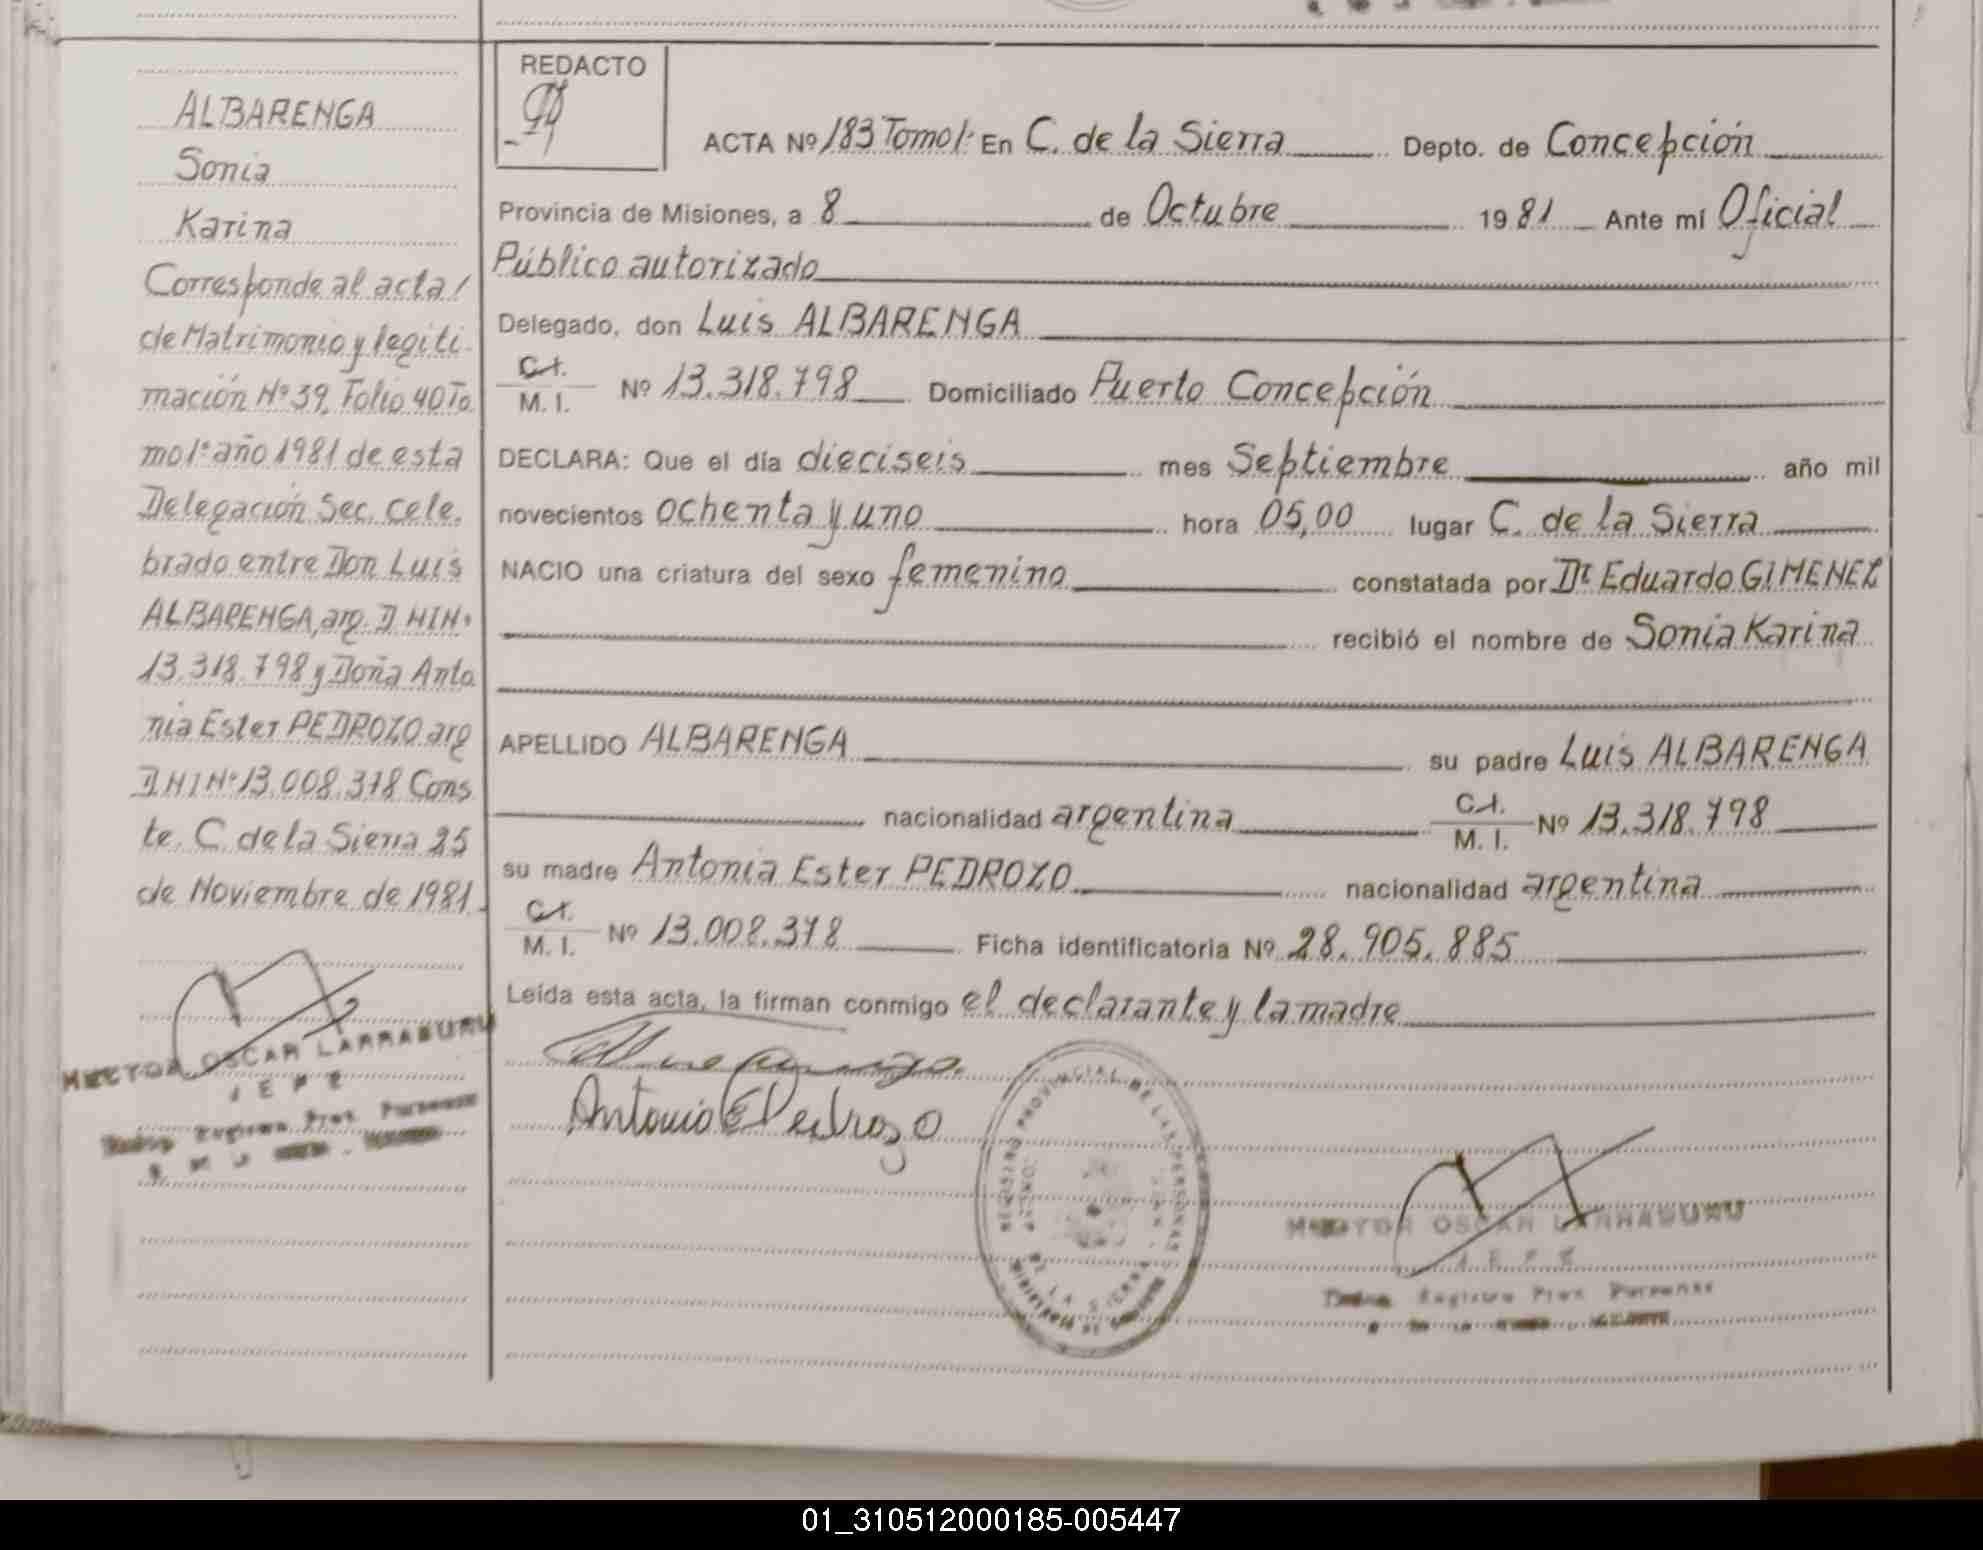 ALBARENGA
Sonia
Karina
Corresponde al acta/
de Matrimonio y legiti-
mación Nº 39, Folio 40 To
mo 1º año 1981 de esta
Delegación Sec. Cele.
brado entre Don Luis
ALBARENGA, arg. DNI Nº
13.318.798 y Doña Anto
nia Ester PEDROZO arg
DNI Nº 13.008.378 Cons
te. C. de la Sierra 25
de Noviembre de 1981.
HECTOR OSCAR LARRABURU
JEFE
Registro Prov. Personas
REDACTO
ACTA Nº 183 Tomo 1º En C. de la Sierra Depto. de Concepción
Provincia de Misiones, a 8 de Octubre 1981 Ante mí Oficial
Público autorizado
Delegado, don Luis ALBARENGA
C.I.
M. I. Nº 13.318.798 Domiciliado Puerto Concepción
DECLARA: Que el día dieciseis mes Septiembre año mil
novecientos ochenta y uno hora 05,00 lugar C. de la Sierra
NACIO una criatura del sexo femenino constatada por Dr Eduardo GIMENEZ
recibió el nombre de Sonia Karina
APELLIDO ALBARENGA su padre Luis ALBARENGA
nacionalidad argentina C.I.
M. I. Nº 13.318.798
su madre Antonia Ester PEDROZO nacionalidad argentina
C.I.
M. I. Nº 13.008.378 Ficha identificatoria Nº 28.905.885
Leída esta acta, la firman conmigo el declarante y la madre
Antonia E Pedrozo
REGISTRO PROVINCIAL DE LAS PERSONAS
DE LA SIERRA
HECTOR OSCAR LARRABURU
JEFE
Registro Prov Personas
01_310512000185-005447